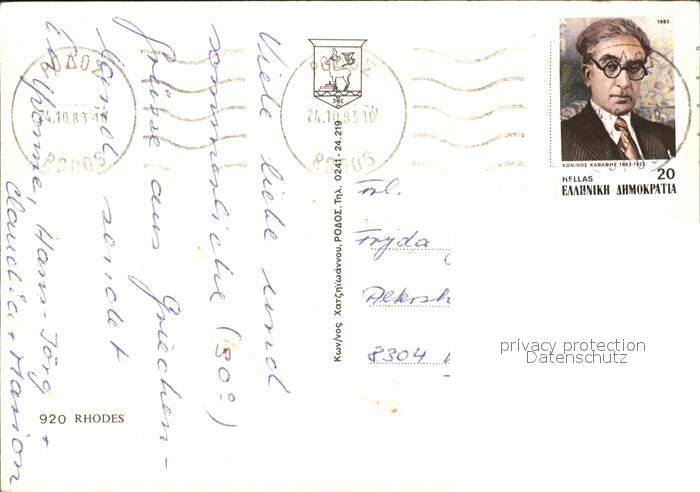 Viele liebe und
sommerliche (30°)
Grüsse aus Griechen-
land sendet
Yvonne, Hans-Jörg +
Claudia + Marion
920 RHODES
ΡΟΔΟΣ
24.10.83
RODOS
ΡΟΔΟΣ
24.10.83-10
RODOS
Κων/νος Χατζηϊωάννου, ΡΟΔΟΣ. Τηλ. 0241-24.219
1983
ΚΩΝ/ΝΟΣ ΚΑΒΑΦΗΣ 1863-1933
20
HELLAS
ΕΛΛΗΝΙΚΗ ΔΗΜΟΚΡΑΤΙΑ
Frl.
Fryda
8304
privacy protection
Datenschutz